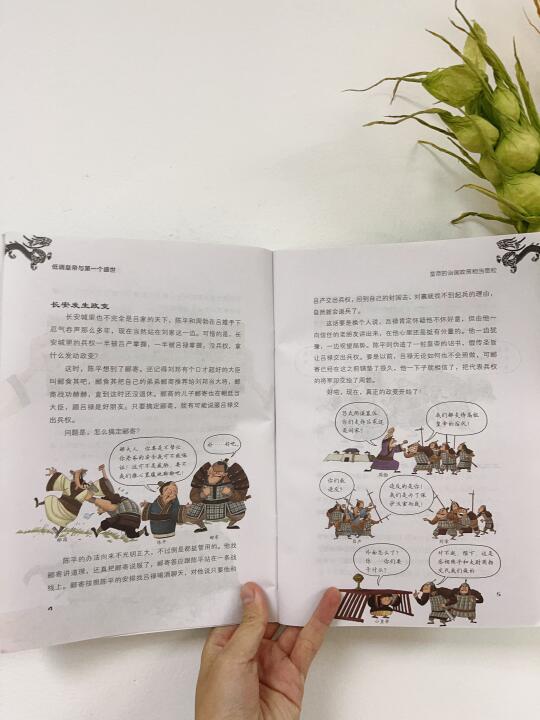 低调皇帝与第一个盛世
长安发生政变
长安城里也不完全是吕家的天下，陈平和周勃在吕雉手下
忍气吞声那么多年，现在当然站在刘家这一边。可惜的是，长
安城里的兵权一半被吕产掌握，一半被吕禄掌握，没兵权，拿
什么发动政变？
这时，陈平想到了郦寄。还记得刘邦有个口才超好的大臣
叫郦食其吧，郦食其把自己的弟弟郦商推荐给刘邦当大将，郦
商战功赫赫，直到这时还没退休。郦商的儿子郦寄也在朝廷当
大臣，跟吕禄是好朋友。只要搞定郦寄，就有可能说服吕禄交
出兵权。
问题是，怎么搞定郦寄？
郦大人，你要是不帮忙，
你爸爸的安全我可不能保
证！这可不是威胁，要不
我们推心置腹地聊聊吧！
好……好吧。
郦商
陈平
郦寄
陈平的办法向来不光明正大，不过倒是都挺管用的。他找
郦寄讲道理，还真把郦寄说服了，郦寄答应跟陈平站在一条战
线上。郦寄按照陈平的安排找吕禄喝酒聊天，对他说只要他和
4
皇帝的治国政策相当宽松
吕产交出兵权，回到自己的封国去，刘襄就找不到起兵的理由，
自然就会退兵了。
这话要是换个人说，吕禄肯定怀疑他不怀好意，但由他一
向信任的老朋友讲出来，在他心里还是挺有分量的。他一边犹
豫，一边观望局势。陈平则伪造了一份皇帝的诏书，假传圣旨
让吕禄交出兵权。要是以前，吕禄无论如何也不会照做，可郦
寄已经在这之前铺垫了很久，他一下子就相信了，把代表兵权
的将军印交给了周勃。
好啦，现在，真正的政变开始了！
吕氏所遗篡位，
你们支持吕家还
是刘家！
我们都支持高祖
皇帝的后代！
周勃
你们敢
造反？
造反的是你！
我们是为了保
护汉室和我！
吕产
刘章
外面怎么了？
你……你们要
干什么？
对不起，陛下，这是
丞相陈平和太尉周勃
交代我们做的……
小皇帝
5